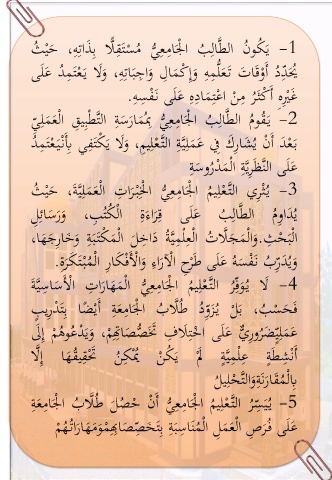 1- يَكُونُ الطَّالِبُ الْجَامِعِيُّ مُسْتَقِلًّا بِذَاتِهِ، حَيْثُ
يُحَدِّدُ أَوْقَاتَ تَعَلُّمِهِ وَإِكْمَالِ وَاجِبَاتِهِ، وَلَا يَعْتَمِدُ عَلَى
غَيْرِهِ أَكْثَرُ مِنْ اعْتِمَادِهِ عَلَى نَفْسِهِ.
2- يَقُومُ الطَّالِبُ الْجَامِعِيُّ بِمُمَارَسَةِ التَّطْبِيقِ الْعَمَلِيِّ
بَعْدَ أَنْ يُشَارِكَ فِي عَمَلِيَّةِ التَّعْلِيمِ، وَلَا يَكْتَفِي بِأَنْيَعْتَمِدُ
عَلَى النَّظَرِيَّةِ الْمَدْرُوسَةِ
3- يُثْرِي التَّعْلِيمُ الْجَامِعِيُّ الْخِبْرَاتِ الْعَمَلِيَّةَ، حَيْثُ
يُدَاوِمُ الطَّالِبُ عَلَى قِرَاءَةِ الْكُتُبِ، وَرَسَائِلِ
الْبَحْثِ.وَالْمَجَلَّاتُ الْعِلْمِيَّةُ دَاخِلَ الْمَكْتَبَةِ وَخَارِجَهَا،
وَيُدَرِّبُ نَفْسَهُ عَلَى طَرْحِ الْآرَاءِ وَالْأَفْكَارِ الْمُبْتَكَرَةِ.
4- لَا يُوَفِّرُ التَّعْلِيمُ الْجَامِعِيُّ الْمَهَارَاتِ الْأَسَاسِيَّةَ
فَحَسْبُ، بَلْ يُزَوِّدُ طُلَّابَ الْجَامِعَةِ أَيْضًا بِتَدْرِيبٍ
عَمَلِيٍّضَرُورِيٍّ عَلَى اخْتِلَافِ تَخَصُّصَاتِهِمْ، وَيَدْعُوهُمْ إِلَى
أَنْشِطَةٍ عِلْمِيَّةٍ لَمْ يَكُنْ يُمْكِنُ تَحْقِيقُهَا إِلَّا
بِالْمُقَارَنَةِوَالتَّحْلِيلُ
5- يُيَسِّرُ التَّعْلِيمُ الْجَامِعِيُّ أَنْ حُصُلَ طُلَّابُ الْجَامِعَةِ
عَلَى فُرَصِ الْعَمَلِ الْمُنَاسِبَةِ بِتَخَصُّصَاتِهِمْوَمَهَارَاتُهُمْ